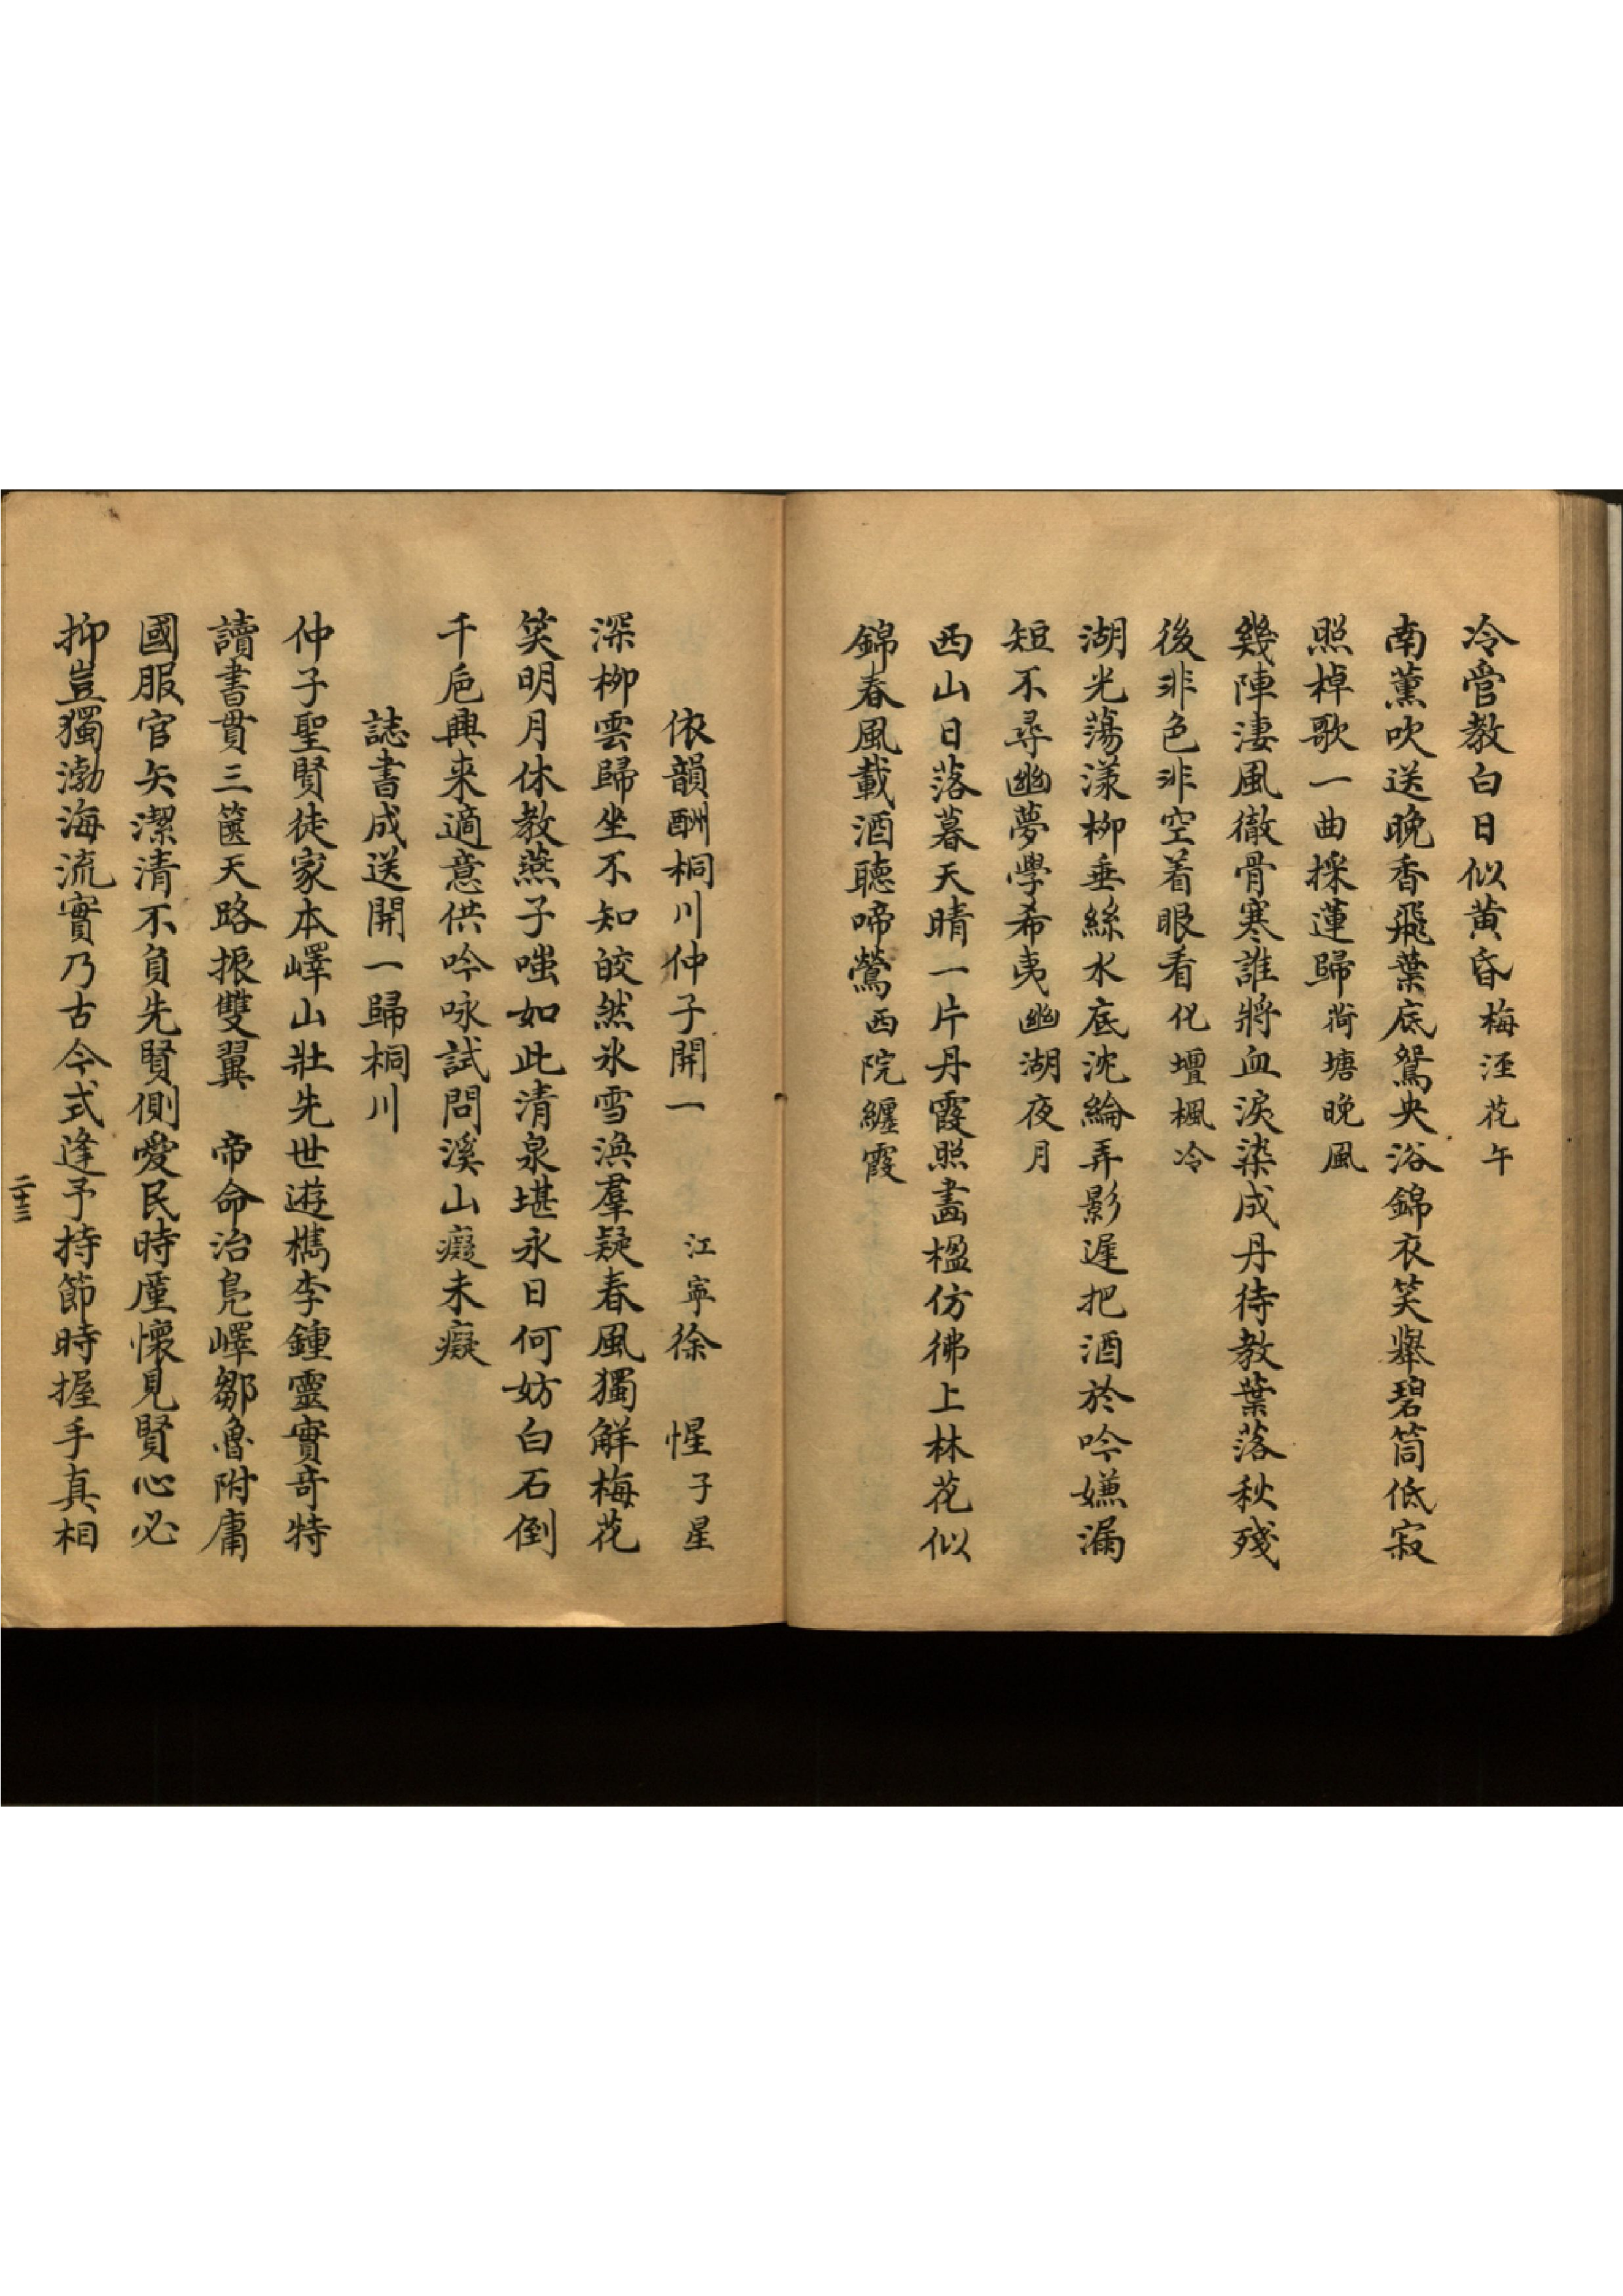 冷管教白日似黄昏梅溼花午
南薰吹送晚香飛葉底鴛央浴錦衣笑舉碧筒低寂
照棹歌一曲採蓮歸荷塘晚風
幾陣淒風徹骨寒誰將血淚染成丹待教葉落秋殘
後非色非空着眼看化壇楓冷
湖光蕩漾柳垂絲水底沈綸弄影遲把酒於吟嫌漏
短不尋幽夢學希夷幽湖夜月
西山日落暮天晴一片丹霞照畵楹仿彿上林花似
錦春風載酒聽啼鶯西院纏霞
依韻酬桐川仲子開一　江寧徐　惺子星
深柳雲歸坐不知皎然氷雪渙羣疑春風獨解梅花
笑明月休教燕子嗤如此清泉堪永日何妨白石倒
千巵興来適意供吟咏試問溪山癡未癡
誌書成送開一歸桐川
仲子聖賢徒家本嶧山壯先世遊檇李鍾靈實竒特
讀書貫三篋天路振雙翼　帝命治鳧嶧鄒魯附庸
國服官矢潔清不負先賢側愛民時廑懷見賢心必
抑豈獨渤海流實乃古今式逢予持節時握手真相
二十三